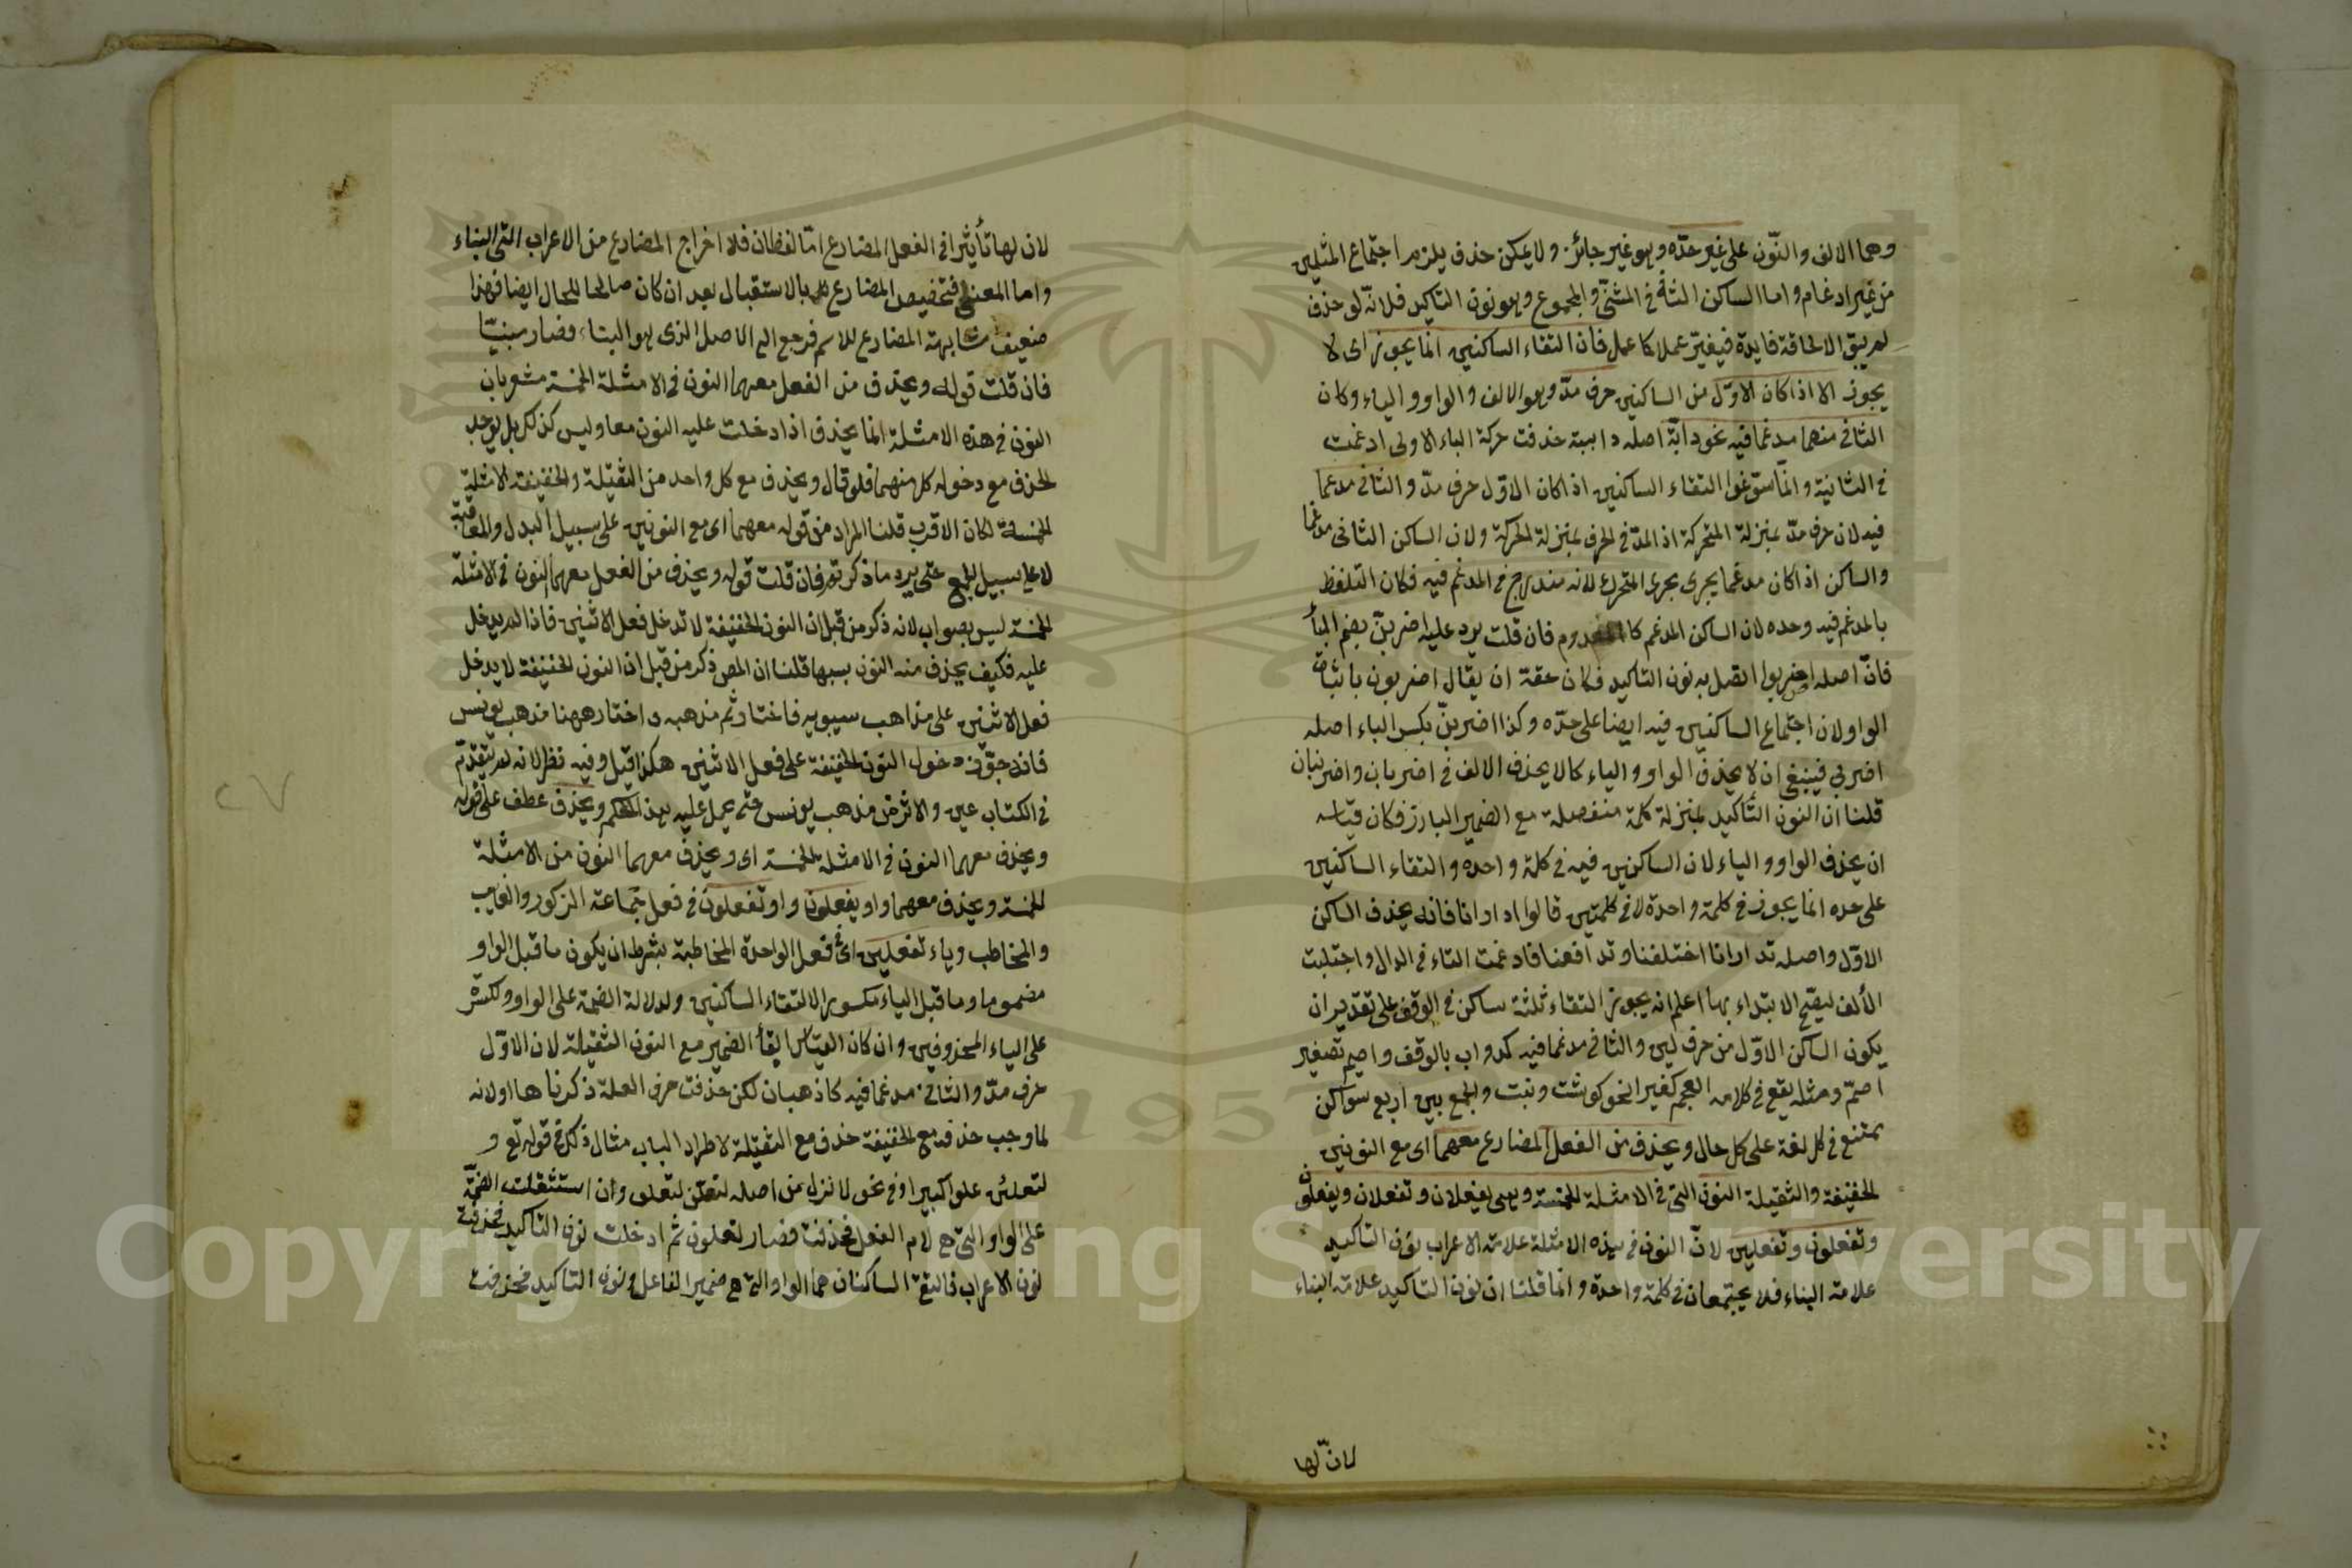 وهما الالف والنّون على غير حدّه وهو غير جائز ولا يمكن حذف يلزم اجتماع المثلين
من غير ادغام واما الساكن الثانى فى المثنّى والمجموع وهو نون التاكيد فلانّه لو حذف
لم يبق الالحاقه فايدة فيغيّر عملا كاعمل فان التقاء الساكنين انما يجوز اى لا
يجوز الا اذا كان الاوّل من الساكنين حرف مدّ وهو الالف والواو والياء وكان
الثانى منهما مدغما فيه نحو دابّة اصله داببة حذفت حركة الباء الاولى ادغمت
فى الثانية وانّما سوّغوا التقاء الساكنين اذا كان الاوّل حرف مدّ والثانى مدغما
فيه لان حرف مدّ بمنزلة المتحركة اذ المدّ فى الحرف بمنزلة الحركة ولان الساكن الثانى مدغما
والساكن اذا كان مدغما يجرى مجرى المتحرك لانه مندرج فى المدغم فيه فكان التلفظ
بالمدغم فيه وحده لان الساكن المدغم كالمعدوم فان قلت يرد عليه اضربنّ بضم الباء
فانّ اصله اضربوا اتصل به نون التاكيد فكان حقه ان يقال اضربون باثبات
الواو لان اجتماع الساكنين فيه ايضا على حدّه وكذا اضربنّ بكسر الباء اصله
اضربي فينبغى ان لا يحذف الواو والياء كالا يحذف الالف فى اضربان واضربنان
قلنا ان النون التأكيد بمنزلة كلمة منفصلة مع الضمير البارز فكان قياسه
ان يحذف الواو والياء لان الساكنين فيه فى كلمة واحده والتقاء الساكنين
على حده انما يجوز فى كلمة واحدة لا فى كلمتين قالوا ادارانا فانه يحذف الساكن
الاوّل واصله تدارانا اختلفنا وتدافعنا فادغمت التاء فى الدال واجتلبت
الألف ليصح الابتداء بها اعلم انه يجوز التقاء ثلثة ساكن فى الوقف على تقدير ان
يكون الساكن الاوّل من حرف لين والثانى مدغما فيه كدواب بالوقف واصيم تصغير
اصمّ ومثله يقع فى كلام العجم كغير النحو كوشت وبنت والجمع بين اربع سواكن
يمتنع فى كل لغة على كل حال ويحذف من الفعل المضارع معهما اى مع النونين
الخفيفة والثقيلة النون التى فى الامثلة الخمسة وهى يفعلان وتفعلان ويفعلون
وتفعلون وتفعلين لانّ النون فى هذه الامثلة علامة الاعراب نون التاكيد
علامة البناء فلا يجتمعان فى كلمة واحدة وانما قلنا ان نون التاكيد علامة البناء
لانّ لها
لان لها تأثيرا فى الفعل المضارع امّا لفظا فلان اخراج المضارع من الاعراب الى البناء
واما المعنى فتخصيص المضارع بالاستقبال بعد ان كان صالحا للحال ايضا فهذا
ضعيف مشابهة المضارع للاسم فرجع الى الاصل الذى هو البناء فصار مبنيّا
فان قلت قوله ويحذف من الفعل معهما النون فى الامثلة الخمسة مشعر بان
النون فى هذه الامثلة انما يحذف اذا دخلت عليه النون معا وليس كذلك بل يوجد
الحذف مع دخول كل منهما فلو قال ويحذف مع كل واحد من الثقيلة والخفيفة الامثلة
الخمسة لكان الاقرب قلنا المراد من قوله معهما اى مع النونين على سبيل البدل والمعاقبة
لا على سبيل الجمع حتى يرد ما ذكرتم فان قلت قوله ويحذف من الفعل معهما النون فى الامثلة
الخمسة ليس بصواب لانه ذكر من قبل ان النون الخفيفة لا تدخل فعل الاثنين فاذا لم يدخل
عليه فكيف يحذف منه النون بسببها قلنا ان المص ذكر من قبل ان النون الخفيفة لا يدخل
فعل الاثنين على مذاهب سيبويه فاختار ثم مذهبه واختار ههنا مذهب يونس
فانه جوّز دخول النون الخفيفة على فعل الاثنين هكذا قيل وفيه نظر لانه لم يتقدّم
فى الكتاب عين والاثر من مذهب يونس حتى يحمل عليه هذا الحكم ويحذف عطف على قوله
ويحذف معهما النون فى الامثلة الخمسة اى ويحذف معهما النون من الامثلة
الخمسة ويحذف معهما واو يفعلون واو تفعلون فى فعل جماعة الذكور والغايب
والمخاطب وياء تفعلين اى فى فعل الواحدة المخاطبة بشرط ان يكون ما قبل الواو
مضموما وما قبل الياء مكسورا لالتقاء الساكنين ولدلالة الضمة على الواو والكسرة
على الياء المحذوفين وان كان القياس ابقاء الضمير مع النون الثقيلة لان الاوّل
حرف مدّ والثانى مدغما فيه كاذهبان لكن حذفت حرف العلة ذكرناها اولانه
لما وجب حذفه مع الخفيفة حذف مع الثقيلة لاطراد الباب مثال ذلك فى قوله تع و
لتعلنّ علوا كبيرا وفى نحو لا نزل من اصله لتعلنّ لتعلو وان استثقلت الضمّة
على الواو التى هى لام الفعل فحذفت فصار لتعلون ثم ادخلت نون التاكيد فحذفت
نون الاعراب فالتقى الساكنان هما الواو التى هى ضمير الفاعل ونون التاكيد فحذفت
٢٧
1957
Copyright © King Saud University